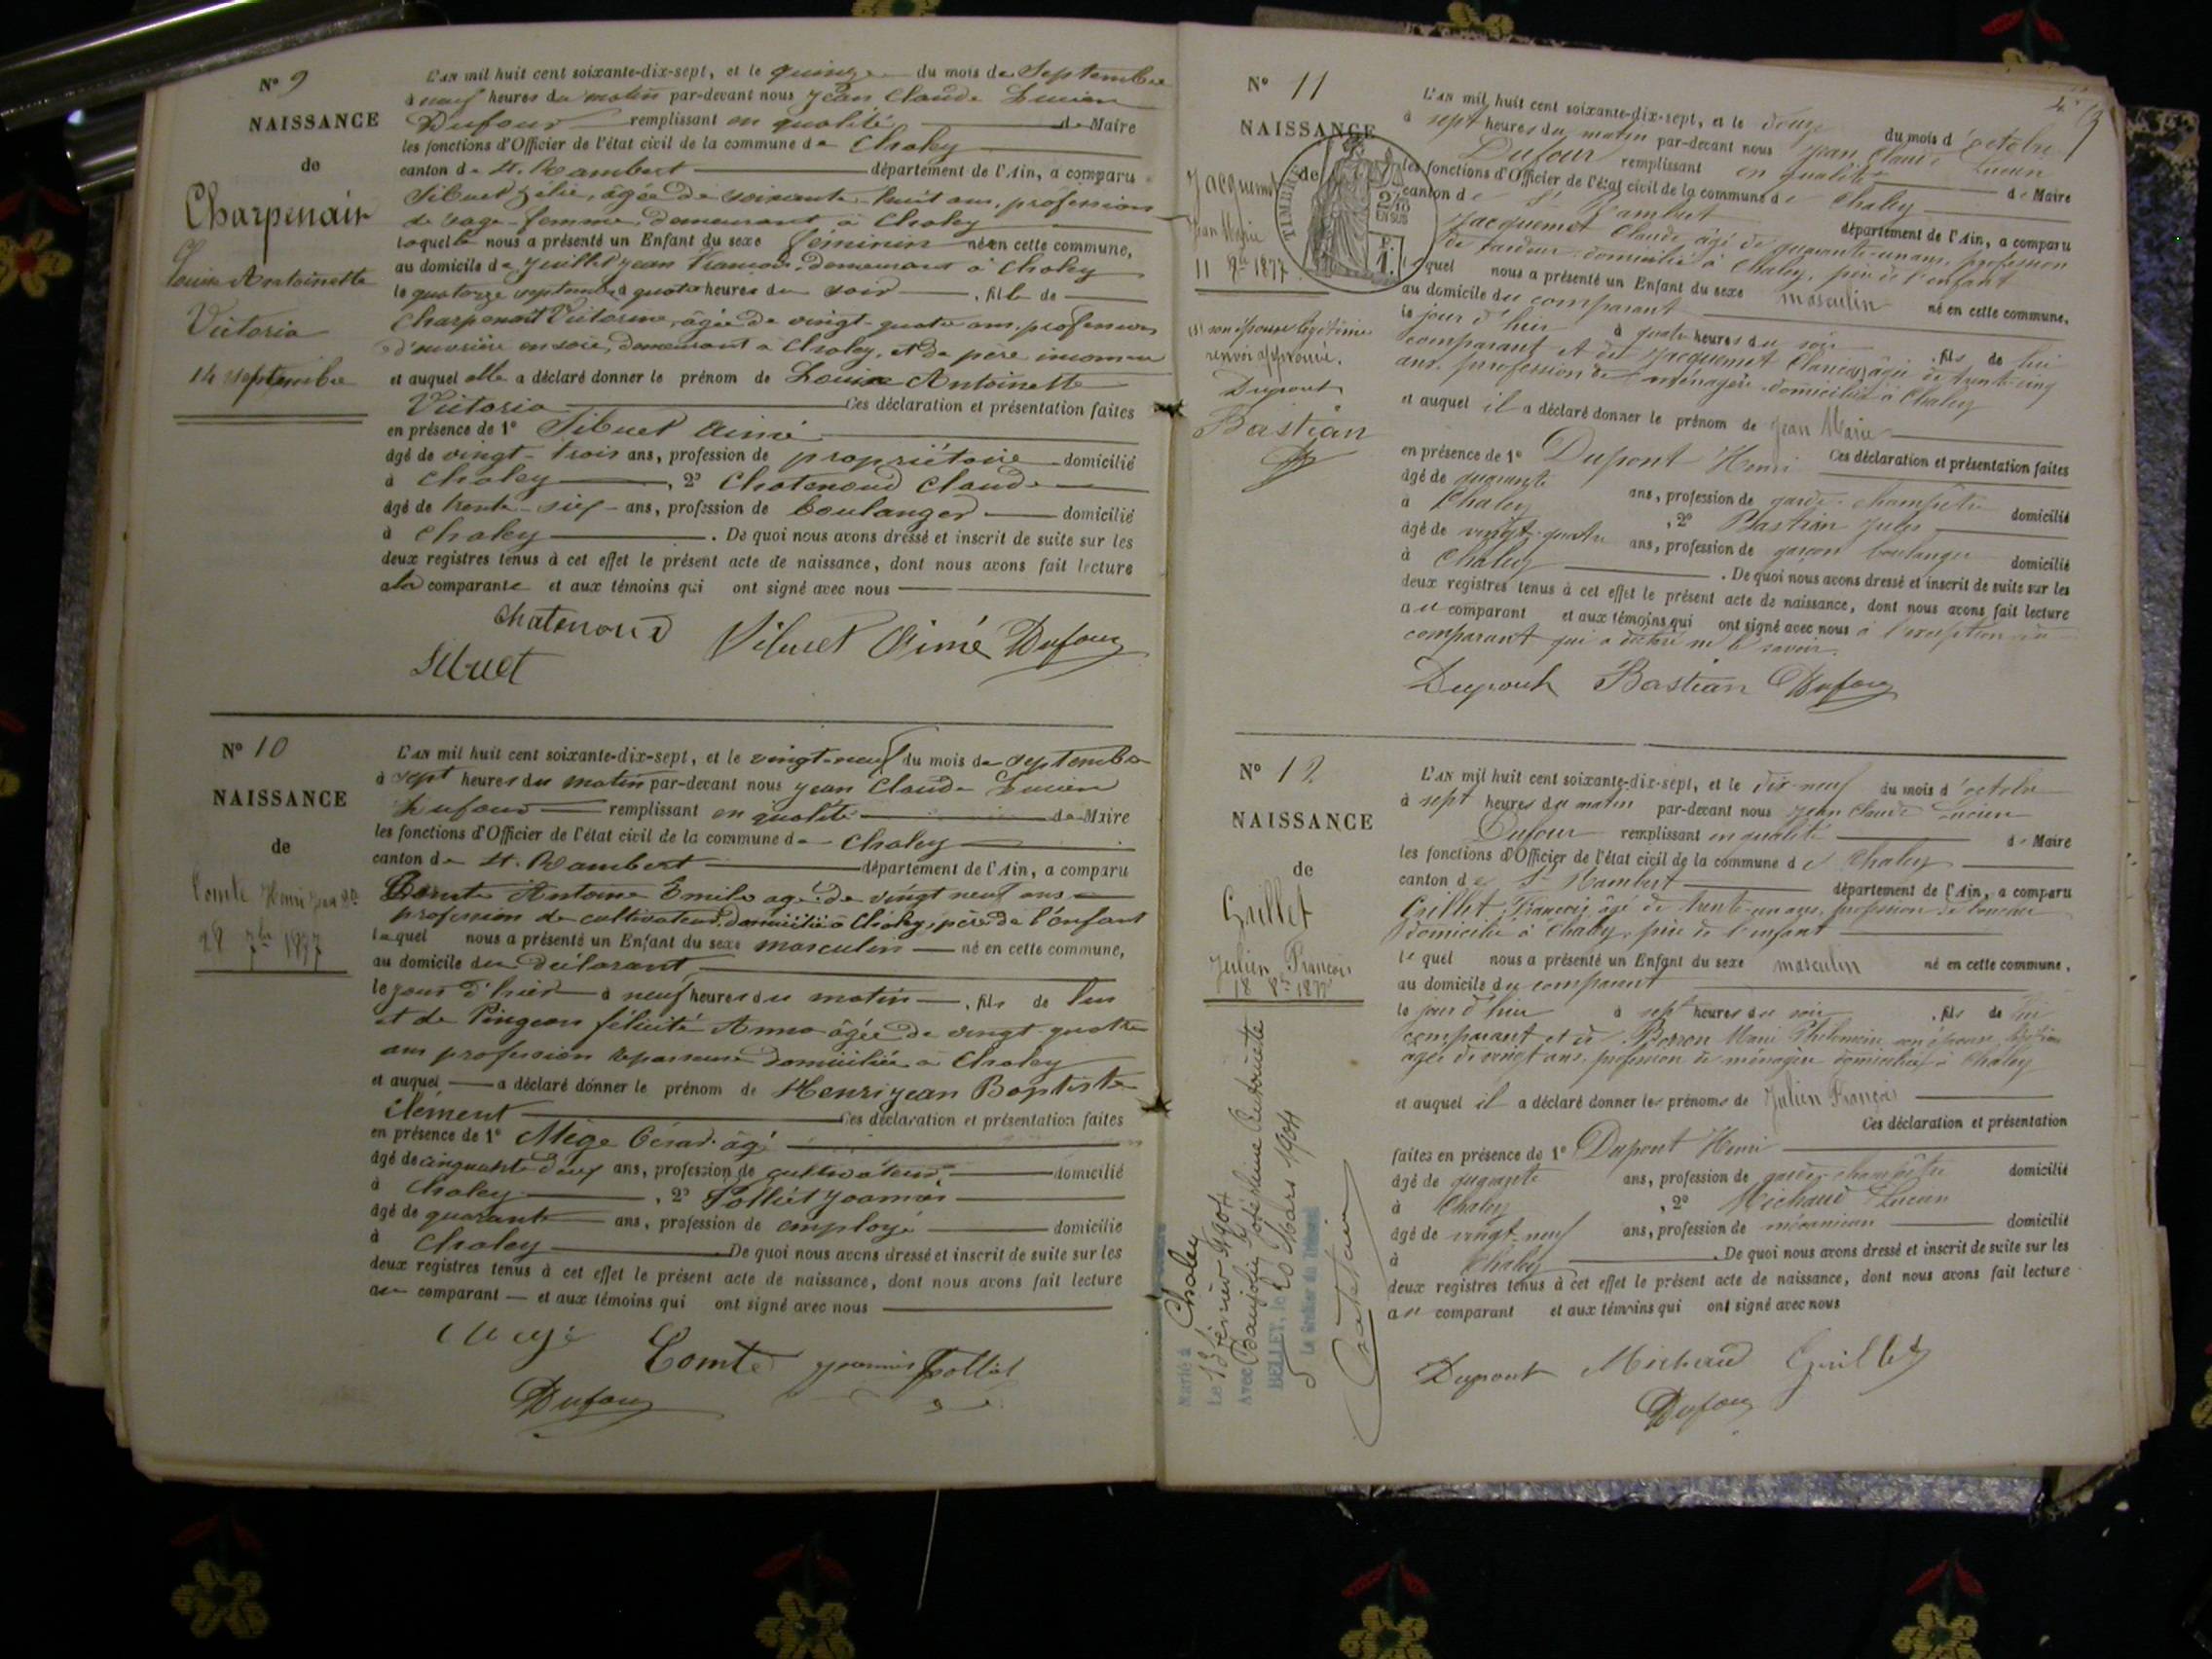 N° 9
NAISSANCE
de
Charpenair
Louise Antoinette
Victoria
14 septembre
L'AN mil huit cent soixante-dix-sept, et le quinze du mois de Septembre
à neuf heures du matin par-devant nous Jean Claude Lucien
Dufour remplissant en qualité de Maire
les fonctions d'Officier de l'état civil de la commune de Chaley
canton de St. Rambert département de l'Ain, a comparu
Sibuet Zélie, âgée de soixante huit ans, profession
de sage-femme, demeurant à Chaley
laquelle nous a présenté un Enfant du sexe féminin né en cette commune,
au domicile de Juillet Jean François, demeurant à Chaley
le quatorze septembre à quatre heures du soir, fille de
Charpenait Victorine, âgée de vingt-quatre ans, profession
d'ouvrière en soie, demeurant à Chaley, et de père inconnu
et auquel elle a déclaré donner le prénom de Louise Antoinette
Victoria Ces déclaration et présentation faites
en présence de 1° Sibuet Aimé
âgé de vingt-trois ans, profession de propriétaire domicilié
à Chaley, 2° Chatenoud Claude
âgé de trente-six ans, profession de boulanger domicilié
à Chaley. De quoi nous avons dressé et inscrit de suite sur les
deux registres tenus à cet effet le présent acte de naissance, dont nous avons fait lecture
à la comparante et aux témoins qui ont signé avec nous
Chatenoud Sibuet Aimé Dufour
Sibuet
N° 10
NAISSANCE
de
Comte Henri Jean Bte
28 7bre 1877
L'AN mil huit cent soixante-dix-sept, et le vingt-neuf du mois de septembre
à sept heures du matin par-devant nous Jean Claude Lucien
Dufour remplissant en qualité de Maire
les fonctions d'Officier de l'état civil de la commune de Chaley
canton de St. Rambert département de l'Ain, a comparu
Comte Antoine Emile agé de vingt neuf ans
profession de cultivateur, domicilié à Chaley, père de l'enfant
lequel nous a présenté un Enfant du sexe masculin né en cette commune,
au domicile du déclarant,
le jour d'hier à neuf heures du matin, fils de lui
et de Pingeon félicité Anna âgée de vingt-quatre
ans profession repasseuse domiciliée à Chaley
et auquel a déclaré donner le prénom de Henri Jean Baptiste
Clément Ces déclaration et présentation faites
en présence de 1° Mège César âgé
âgé de cinquante deux ans, profession de cultivateur, domicilié
à Chaley, 2° Polliet Joannès
âgé de quarante ans, profession de employé domicilié
à Chaley De quoi nous avons dressé et inscrit de suite sur les
deux registres tenus à cet effet le présent acte de naissance, dont nous avons fait lecture
au comparant et aux témoins qui ont signé avec nous
Comte Joannès Polliet
Dufour
N° 11
NAISSANCE
de
TIMBRE
2/10
EN SUS
F.
1.
Jacquemet
Jean Marie
11 8bre 1877
(1) son épouse légitime
renvoi approuvé.
Dupont
Bastian
L'AN mil huit cent soixante-dix-sept, et le douze du mois d'octobre
à sept heures du matin par-devant nous Jean Claude Lucien
Dufour remplissant en qualité de Maire
les fonctions d'Officier de l'état civil de la commune de Chaley
canton de St Rambert département de l'Ain, a comparu
Jacquemet Claude, âgé de quarante-un ans, profession
de cardeur, domicilié à Chaley, père de l'enfant
lequel nous a présenté un Enfant du sexe masculin né en cette commune,
au domicile du comparant
le jour d'hier à quatre heures du soir, fils de lui
comparant et de Jacquemet âgée de trente-cinq
ans, profession de ménagère domiciliée à Chaley
et auquel il a déclaré donner le prénom de Jean Marie
en présence de 1° Dupont Henri Ces déclaration et présentation faites
âgé de quarante ans, profession de garde-champêtre domicilié
à Chaley, 2° Bastian Jules
âgé de vingt-quatre ans, profession de garçon boulanger domicilié
à Chaley. De quoi nous avons dressé et inscrit de suite sur les
deux registres tenus à cet effet le présent acte de naissance, dont nous avons fait lecture
au comparant et aux témoins qui ont signé avec nous à l'exception du
comparant qui a déclaré ne le savoir.
Dupont Bastian Dufour
N° 12
NAISSANCE
de
Grillet
Julien François
18 8bre 1877
Marié à Chaley
Le 13 Février 1904
Avec Josephine Antoinette
BELLEY, le 20 Mars 1904
Le Greffier du Tribunal
L'AN mil huit cent soixante-dix-sept, et le dix-neuf du mois d'octobre
à sept heures du matin par-devant nous Jean Claude Lucien
Dufour remplissant en qualité de Maire
les fonctions d'Officier de l'état civil de la commune de Chaley
canton de St Rambert département de l'Ain, a comparu
Grillet François, âgé de trente-un ans, profession de
domicilié à Chaley, père de l'enfant
lequel nous a présenté un Enfant du sexe masculin né en cette commune,
au domicile du comparant
le jour d'hier à sept heures du soir, fils de lui
comparant et de Marie Philomène, son épouse légitime
agée de vingt ans, profession de ménagère domiciliée à Chaley
et auquel il a déclaré donner les prénoms de Julien François
Ces déclaration et présentation
faites en présence de 1° Dupont Henri
âgé de quarante ans, profession de garde-champêtre domicilié
à Chaley, 2° Michaud Lucien
âgé de vingt-neuf ans, profession de mécanicien domicilié
à Chaley. De quoi nous avons dressé et inscrit de suite sur les
deux registres tenus à cet effet le présent acte de naissance, dont nous avons fait lecture
au comparant et aux témoins qui ont signé avec nous
Dupont Michaud Grillet
Dufour